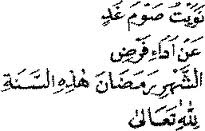 نَوَيْتُ صَوْمَ غَدٍ
عَنْ اَدَاءِ فَرْضِ
الشَّهْرِ رَمَضَانَ هٰذِهِ السَّنَةِ
لِلّٰهِ تَعَالَى